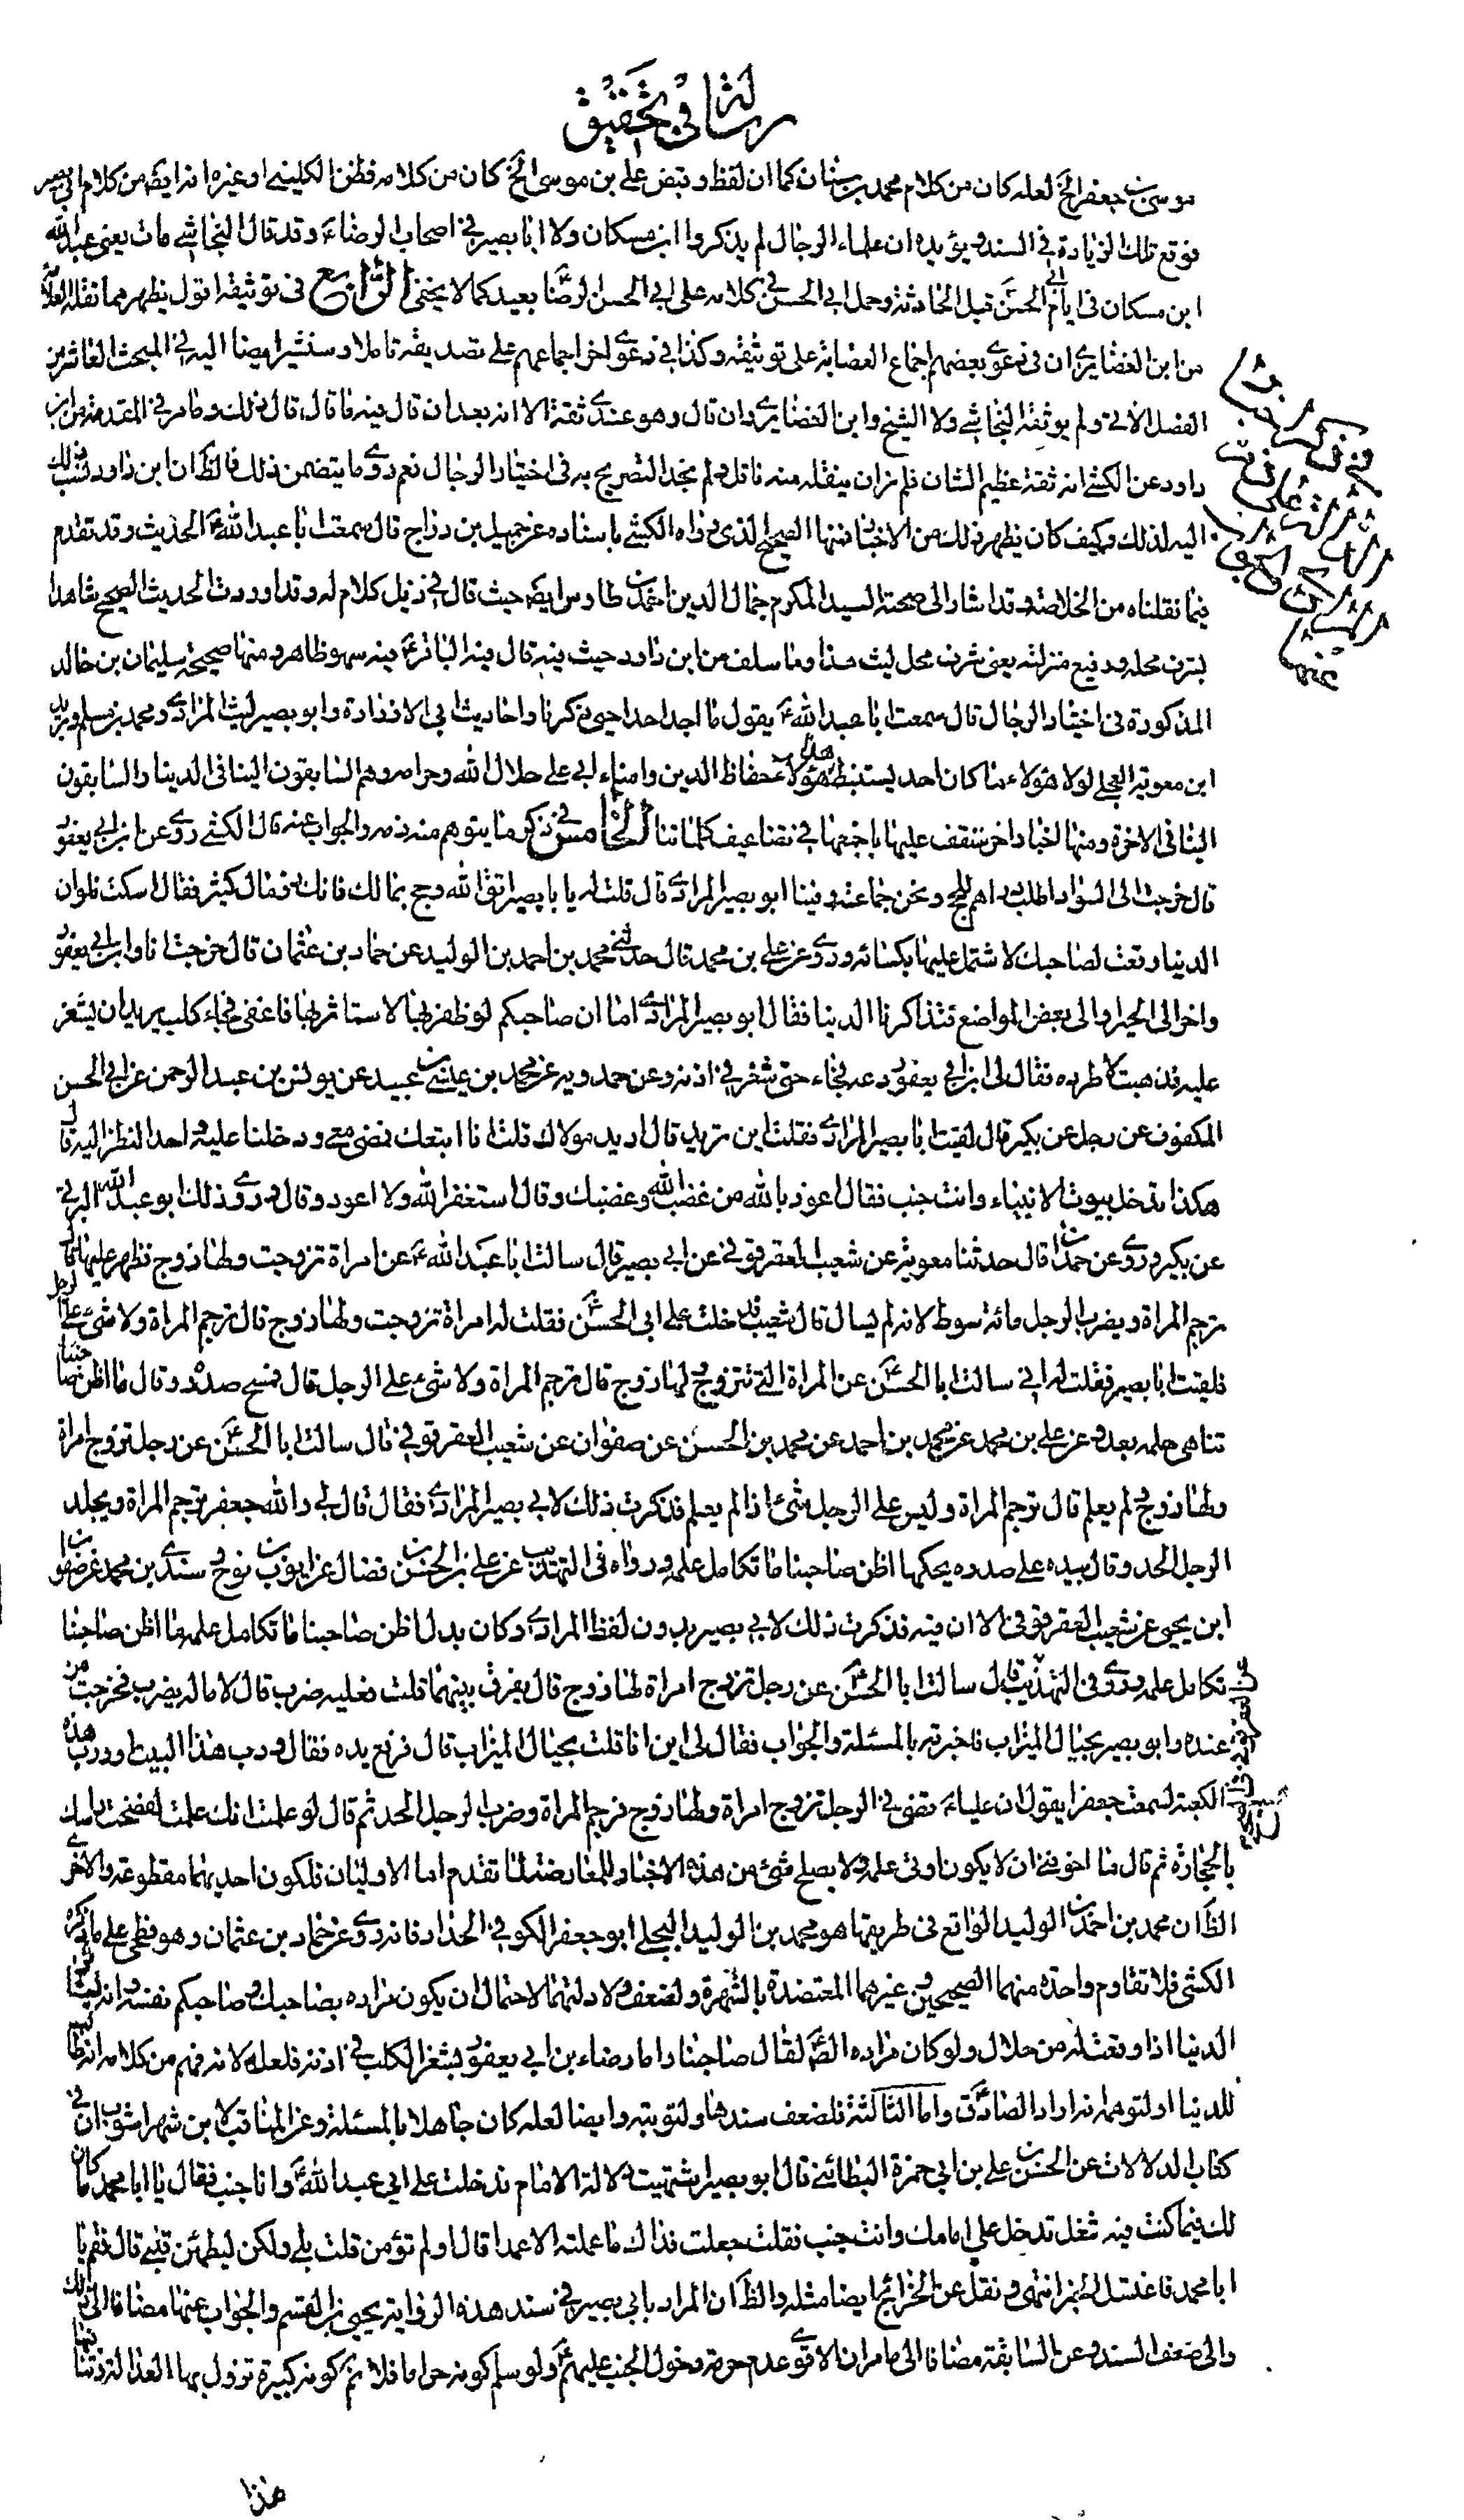 رسالة في تحقيق
موسى بن جعفر الخ لعله كان من كلام محمد بن سنان كما ان لفظ وقبض علي بن موسى الخ كان من كلامه فظن الكليني او غيره انه ايضا من كلام ابي بصير
فوقع تلك الزيادة في السند ويؤيده ان علماء الرجال لم يذكروا ابن مسكان ولا ابا بصير في اصحاب الرضاء وقد قال النجاشي مات يعني عبد الله
ابن مسكان في ايام ابي الحسن قبل الحادثة وحمل ابي الحسن في كلامه على ابي الحسن الرضا بعيد كما لا يخفى الرابع في توثيقه اقول يظهر مما نقله العلامة
من ابن الغضايري ان في دعوى بعضهم اجماع العصابة على توثيقه وكذا في دعوى اخر اجماعهم على تصديقه تاملا وسنشير ايضا اليه في المبحث العاشر من
الفصل الاتي ولم يوثقه النجاشي ولا الشيخ وابن الغضايري وان قال وهو عندي ثقة الا انه بعد ان قال فيه ما قال قال ذلك وما مر في المقدمة من ابن
داود عن الكشي انه ثقة عظيم الشان فلم نر ان ينقله منه ناقل ولم نجد التصريح به في اختيار الرجال نعم روى ما يتضمن ذلك فالظ ان ابن داود نسب ذلك
اليه لذلك وكيف كان يظهر ذلك من الاخبار فمنها الصحيح الذي رواه الكشي باسناده عن جميل بن دراج قال سمعت ابا عبد الله ع الحديث وقد تقدم
فيما نقلناه من الخلاصة وقد اشار الى صحته السيد المكرم جمال الدين احمد بن طاوس ايضا حيث قال في ذيل كلام له وقد اوردت الحديث الصحيح شاهدا
بشرف محله ورفيع منزلته يعني شرف محل ليث هذا وما سلف من ابن داود حيث فيه قال فيه الباقر ع فيه سهو ظاهر ومنها صحيحة سليمان بن خالد
المذكورة في اختيار الرجال قال سمعت ابا عبد الله ع يقول ما اجد احدا احيى ذكرنا واحاديث ابي الا زرارة وابو بصير ليث المرادي ومحمد بن مسلم وبريد
ابن معوية العجلي لولا هؤلاء ما كان احد يستنبط هدى هؤلاء حفاظ الدين وامناء ابي على حلال الله وحرامه وهم السابقون الينا في الدنيا والسابقون
الينا في الاخرة ومنها اخبار اخر ستقف عليها باجمعها في تضاعيف كلماتنا الخامس في ذكر ما يتوهم منه ذمه والجواب عنه قال الكشي روى عن ابن ابي يعفور
قال خرجت الى السواد اطلب دراهم للحج ونحن جماعة وفينا ابو بصير المرادي قال قلت له يا ابا بصير اتق الله وحج بمالك فانك ذو مال كثير فقال اسكت فلو ان
الدنيا وقعت لصاحبك لاشتمل عليها بكسائه وروى عن علي بن محمد قال حدثني محمد بن احمد بن الوليد عن حماد بن عثمان قال خرجت انا وابن ابي يعفور
واخر الى الحيرة او الى بعض المواضع فتذاكرنا الدنيا فقال ابو بصير المرادي اما ان صاحبكم لو ظفر بها لاستاثر بها فاغفى فجاء كلب يريد ان يشغر
عليه فذهبت لاطرده فقال لي ابن ابي يعفور دعه فجاء حتى شغر في اذنه وعن حمدويه عن محمد بن عيسى بن عبيد عن يونس بن عبد الرحمن عن ابي الحسن
المكفوف عن رجل عن بكير قال لقيت ابا بصير المرادي فقلت اين تريد قال اريد مولاك قلت انا اتبعك فمضى معي ودخلنا عليه واحد النظر اليه قال
هكذا تدخل بيوت الانبياء وانت جنب فقال اعوذ بالله من غضب الله وغضبك وقال استغفر الله ولا اعود وقال وروى ذلك ابو عبد الله البرقي
عن بكير وروى عن حمدان قال حدثنا معوية عن شعيب العقرقوفي عن ابي بصير قال سالت ابا عبد الله ع عن امراة تزوجت ولها زوج فظهر عليها قال
ترجم المراة ويضرب الرجل مائة سوط لانه لم يسال قال شعيب فدخلت على ابي الحسن ع فقلت له امراة تزوجت ولها زوج قال ترجم المراة ولا شيء على الرجل
فلقيت ابا بصير فقلت له اني سالت ابا الحسن ع عن المراة التي تتزوج ولها زوج قال ترجم المراة ولا شيء على الرجل قال فمسح صدره وقال ما اظن صاحبنا
تناهى حلمه بعد وعن علي بن محمد عن محمد بن احمد عن محمد بن الحسن عن صفوان عن شعيب العقرقوفي قال سالت ابا الحسن ع عن رجل تزوج امراة
ولها زوج ولم يعلم قال ترجم المراة وليس على الرجل شيء اذا لم يعلم فذكرت ذلك لابي بصير المرادي فقال قال لي والله جعفر ترجم المراة ويجلد
الرجل الحد وقال بيده على صدره يحكها اظن صاحبنا ما تكامل علمه ورواه في التهذيب عن علي بن الحسن بن فضال عن ايوب بن نوح وسندي بن محمد عن صفوان
ابن يحيى عن شعيب العقرقوفي الا ان فيه فذكرت ذلك لابي بصير بدون لفظ المرادي وكان بدل اظن صاحبنا ما تكامل علمه ما اظن صاحبنا
تكامل علمه وروى في التهذيب قال سالت ابا الحسن ع عن رجل تزوج امراة لها زوج قال يفرق بينهما قلت فعليه ضرب قال لا ما له يضرب فخرجت من
عنده وابو بصير بحيال الميزاب فاخبرته بالمسئلة والجواب فقال لي اين انا قلت بحيال الميزاب قال فرفع يده فقال ورب هذا البيت او ورب هذه
الكعبة لسمعت جعفرا يقول ان عليا ع قضى في الرجل تزوج امراة ولها زوج فرجم المراة وضرب الرجل الحد ثم قال لو علمت انك علمت لفضخت راسك
بالحجارة ثم قال ما اخوفني ان لا يكون اوتي علمه ولا يصلح شيء من هذه الاخبار للمعارضة لما تقدم اما الاوليان فلكون احديهما مقطوعة والاخرى
الظ ان محمد بن احمد بن الوليد الواقع في طريقها هو محمد بن الوليد البجلي ابو جعفر الكوفي الخزاز فانه روى عن حماد بن عثمان وهو فطحي على ما ذكره
الكشي فلا تقاوم واحدة منهما الصحيحين وغيرهما المعتضدة بالشهرة ولضعف دلالتهما لاحتمال ان يكون مراده بصاحبك وصاحبكم نفسه وانه
الدنيا اذا وقعت له من حلال ولو كان مراده الص ع لقال صاحبنا واما رضاء بن ابي يعفور بشغر الكلب في اذنه فلعله لانه فهم من كلامه انه
للدنيا او لتوهمه انه اراد الصادق ع واما الثالثة فلضعف سندها ولتوبته وايضا لعله كان جاهلا بالمسئلة وعن المناقب لابن شهراشوب ان في
كتاب الدلالات عن الحسن بن علي بن ابي حمزة البطائني قال ابو بصير اشتهيت دلالة الامام فدخلت على ابي عبد الله ع وانا جنب فقال يا ابا محمد ما كان
لك فيما كنت فيه شغل تدخل على امامك وانت جنب فقلت جعلت فداك ما عملته الا عمدا قال اولم تؤمن قلت بلى ولكن ليطمئن قلبي قال فقم يا
ابا محمد فاغتسل الخبر انتهى ونقل عن الخرائج ايضا مثله والظ ان المراد بابي بصير في سند هذه الرواية يحيى بن القسم والجواب عنها مضافا الى ذلك
والى ضعف السند وعن السابقة مضافا الى ما مر ان الاقوى عدم حرمة دخول الجنب عليهم ع ولو سلم كونه حراما فلا نم كونه كبيرة تزول بها العدالة
هذا